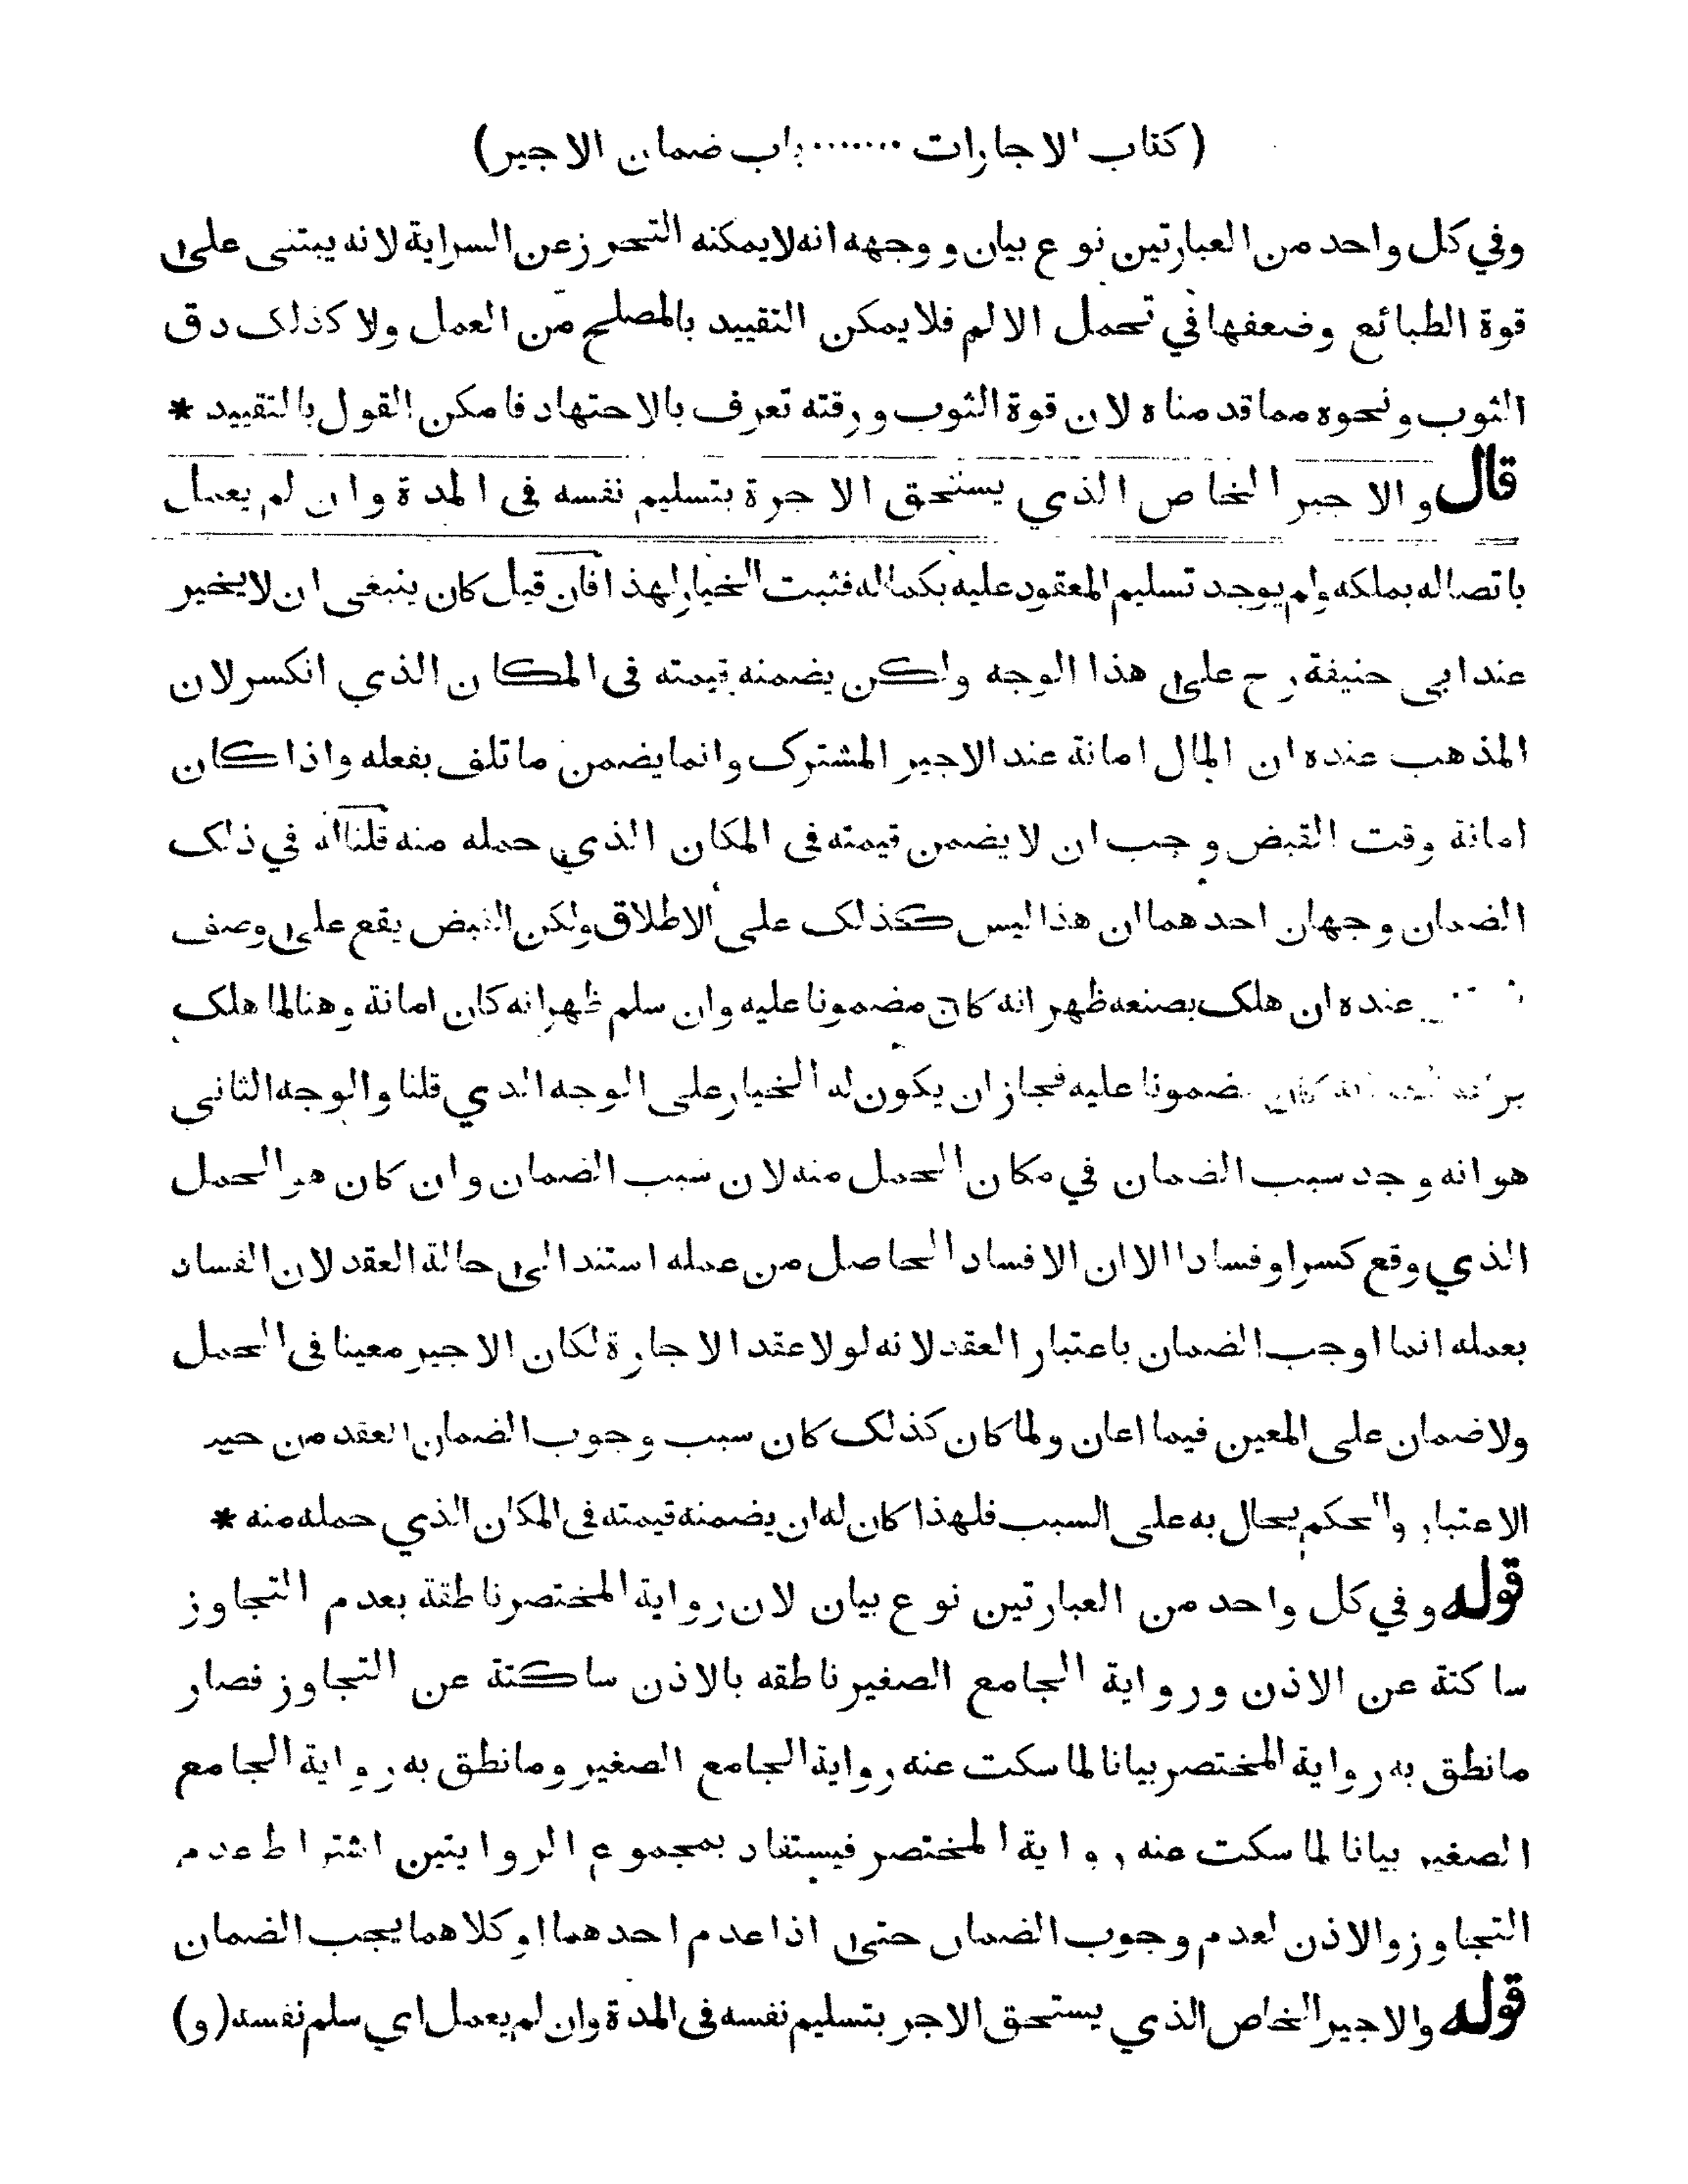 (كتاب الاجارات ....... باب ضمان الاجير)
وفي كل واحد من العبارتين نوع بيان ووجهه انه لا يمكنه التحرز عن السراية لانه يبتنى على
قوة الطبائع وضعفها في تحمل الالم فلا يمكن التقييد بالمصلح من العمل ولا كذلك دق
الثوب ونحوه مما قدمناه لان قوة الثوب ورقته تعرف بالاجتهاد فامكن القول بالتقييد *
قال والاجير الخاص الذي يستحق الاجرة بتسليم نفسه فى المدة وان لم يعمل
باتصاله بملكه ولم يوجد تسليم المعقود عليه بكماله فثبت الخيار لهذا فان قيل كان ينبغى ان لا يخير
عند ابى حنيفة رح على هذا الوجه ولكن يضمنه قيمته فى المكان الذي انكسر لان
المذهب عنده ان المال امانة عند الاجير المشترك وانما يضمن ما تلف بفعله واذا كان
امانة وقت القبض وجب ان لا يضمن قيمته فى المكان الذي حمله منه قلنا له في ذلك
الضمان وجهان احدهما ان هذا ليس كذلك على الاطلاق ولكن القبض يقع على وصف
عنده ان هلك بصنعه ظهر انه كان مضمونا عليه وان سلم ظهر انه كان امانة وهنا لما هلك
كان مضمونا عليه فجاز ان يكون له الخيار على الوجه الذي قلنا والوجه الثانى
هو انه وجد سبب الضمان في مكان الحمل منه لان سبب الضمان وان كان هو الحمل
الذي وقع كسرا وفسادا الا ان الافساد الحاصل من عمله استند الى حالة العقد لان الفساد
بعمله انما اوجب الضمان باعتبار العقد لانه لولا عقد الاجارة لكان الاجير معينا فى الحمل
ولا ضمان على المعين فيما اعان ولما كان كذلك كان سبب وجوب الضمان العقد من
الاعتبار والحكم يحال به على السبب فلهذا كان له ان يضمنه قيمته فى المكان الذي حمله منه *
قوله وفي كل واحد من العبارتين نوع بيان لان رواية المختصر ناطقة بعدم التجاوز
ساكتة عن الاذن ورواية الجامع الصغير ناطقه بالاذن ساكتة عن التجاوز فصار
ما نطق به رواية المختصر بيانا لما سكت عنه رواية الجامع الصغير وما نطق به رواية الجامع
الصغير بيانا لما سكت عنه رواية المختصر فيستفاد بمجموع الروايتين اشتراط عدم
التجاوز والاذن لعدم وجوب الضمان حتى اذا عدم احدهما او كلاهما يجب الضمان
قوله والاجير الخاص الذي يستحق الاجر بتسليم نفسه فى المدة وان لم يعمل اي سلم نفسه (و)